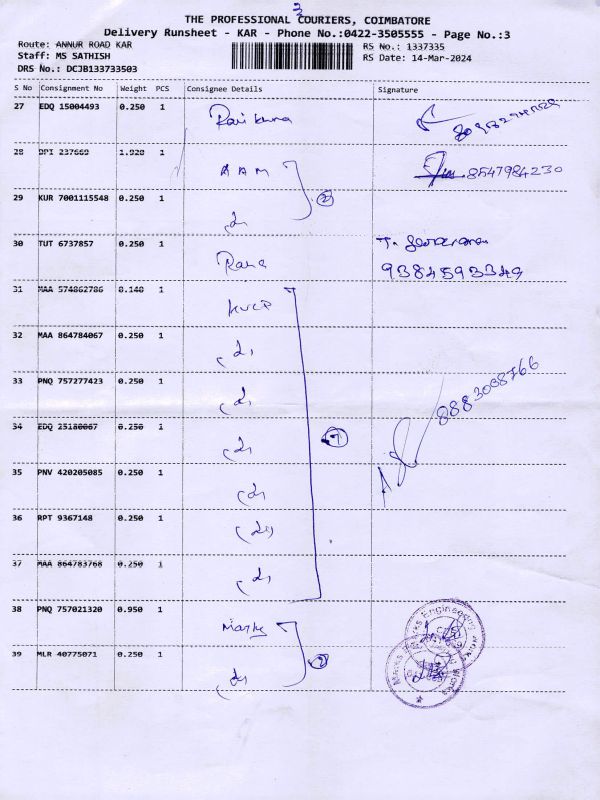 3
THE PROFESSIONAL COURIERS, COIMBATORE
Delivery Runsheet - KAR - Phone No.:0422-3505555 - Page No.:3
Route: ANNUR ROAD KAR
Staff: MS SATHISH
DRS No.: DCJB133733503
RS No.: 1337335
RS Date: 14-Mar-2024
S No Consignment No Weight PCS Consignee Details Signature
27 EDQ 15004493 0.250 1
28 DPI 237669 1.920 1 AAM 8547984230
29 KUR 7001115548 0.250 1 2
30 TUT 6737857 0.250 1
9384593349
31 MAA 574862786 0.140 1 KVCP
32 MAA 864784067 0.250 1
33 PNQ 757277423 0.250 1
8883088766
34 EDQ 25180067 0.250 1 7
35 PNV 420205085 0.250 1
36 RPT 9367148 0.250 1
37 MAA 864783768 0.250 1
38 PNQ 757021320 0.950 1
39 MLR 40775071 0.250 1 2